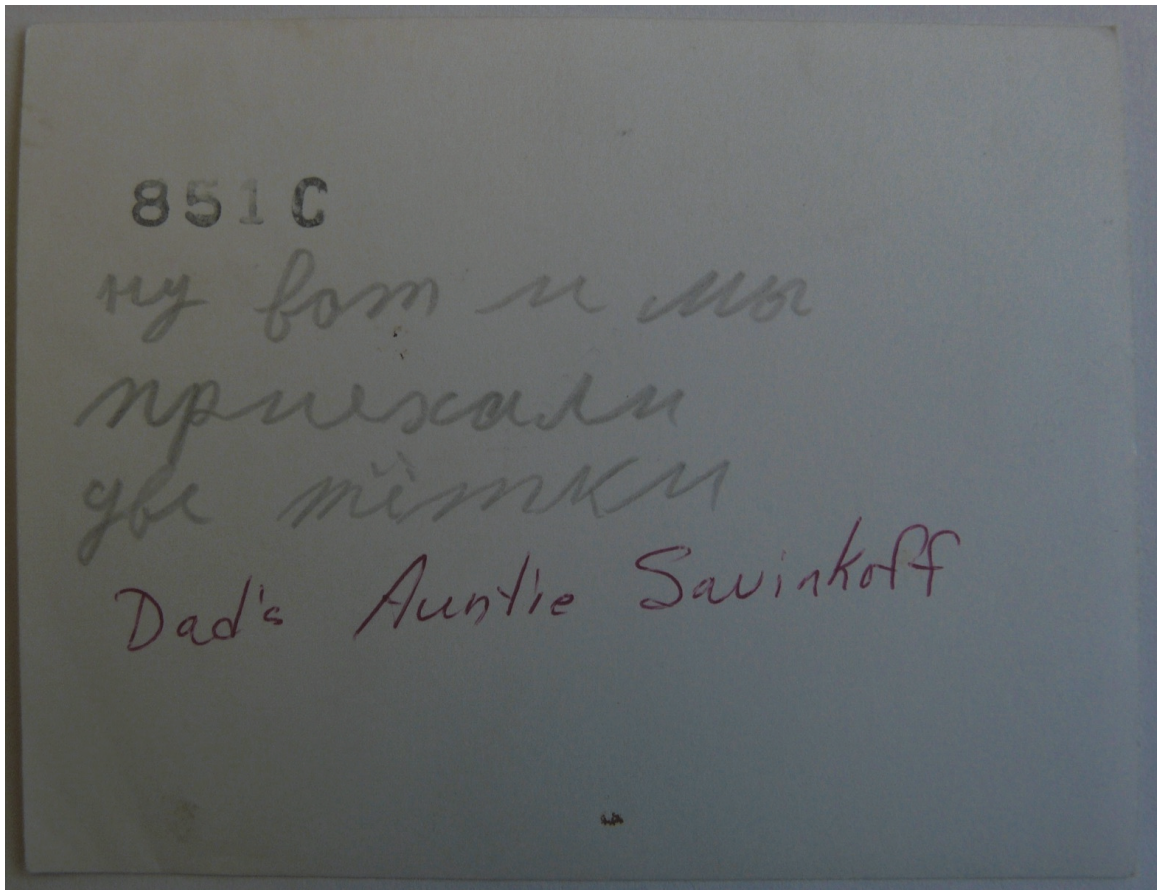 851C
ну вот и мы
приехали
две тётки
Dad's Auntie Savinkoff